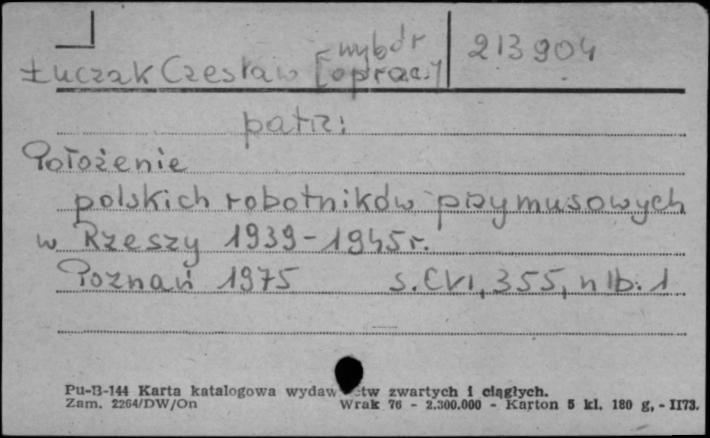 wybór 213904
Łuczak Czesław [oprac.]
patrz:
Położenie
polskich robotników przymusowych
w Rzeszy 1939-1945r.
Poznań 1975 s. CVI, 355, nlb. 1
Pu-B-144 Karta katalogowa wydawnictw zwartych i ciągłych.
Zam. 2264/DW/On Wrak 76 - 2.300.000 - Karton 5 kl. 180 g, - II73.